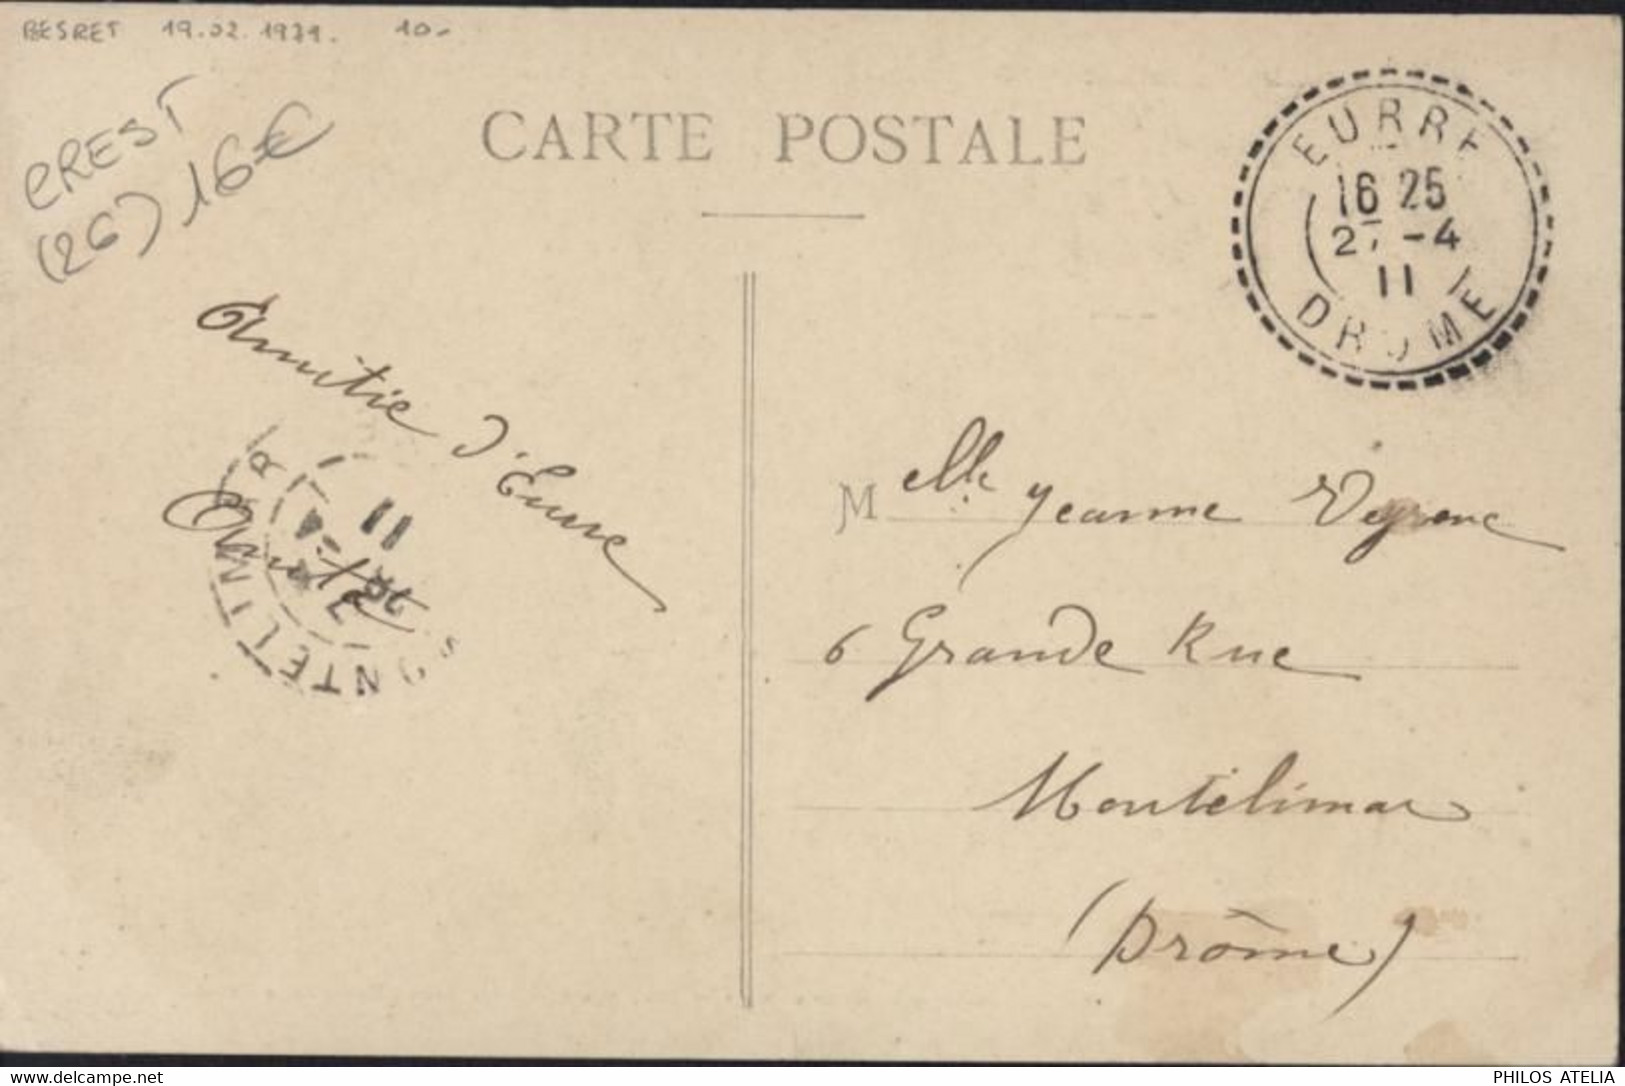 BESRET 19.02.1971. 10-
CREST
(26) 16€
CARTE POSTALE
EURRE
16 25
27 -4
11
DROME
Amitié d'Eurre
MONTELIMAR
11
Melle Jeanne Veyrenc
6 Grande Rue
Montélimar
(Drôme)
DELCAMPE.NET
PHILOS ATELIA